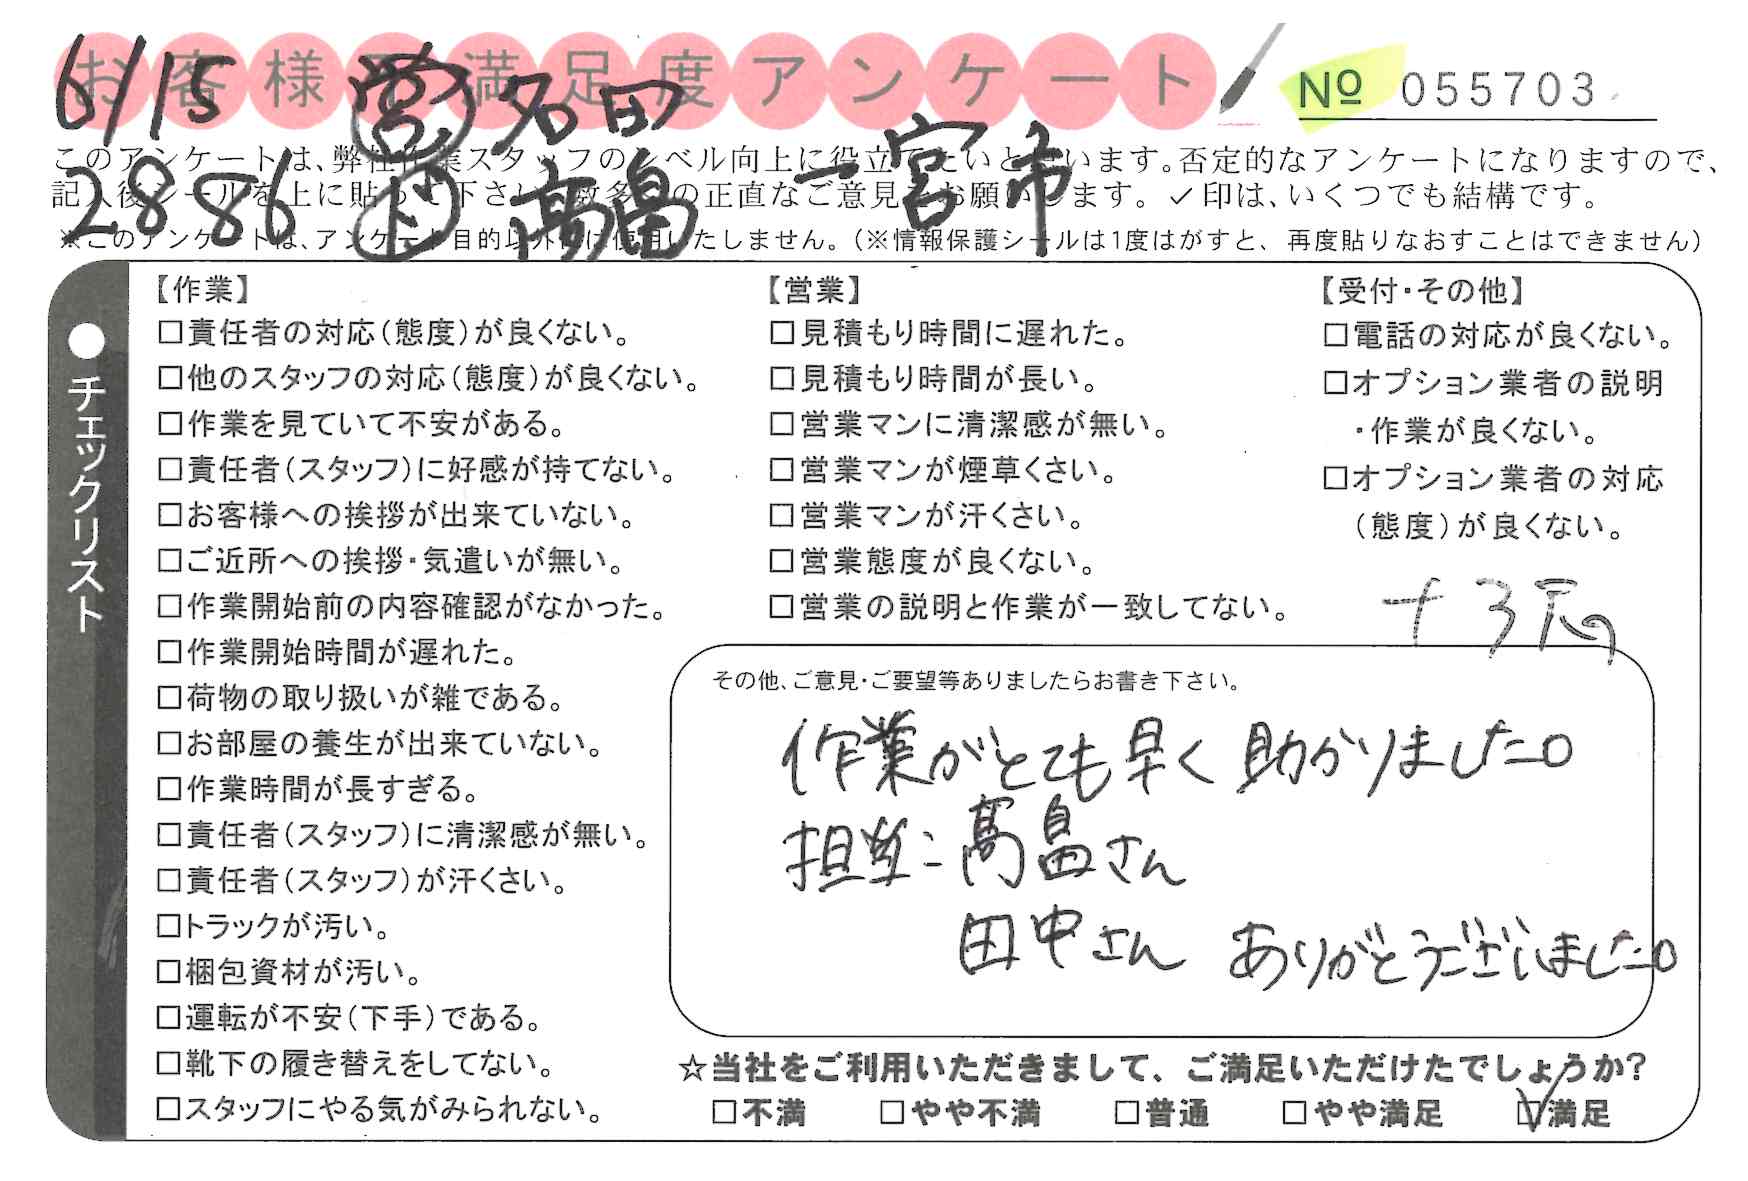 お客様満足度アンケート
№ 055703
6/15 ㊂ 名田
2886 高畠 一宮市
このアンケートは、弊社作業スタッフのレベル向上に役立てたいと思います。否定的なアンケートになりますので、
記入後シールを上に貼って下さい。数多くの正直なご意見をお願いします。✓印は、いくつでも結構です。
※このアンケートは、アンケート目的以外には使用いたしません。(※情報保護シールは1度はがすと、再度貼りなおすことはできません)
●チェックリスト
【作業】
□責任者の対応(態度)が良くない。
□他のスタッフの対応(態度)が良くない。
□作業を見ていて不安がある。
□責任者(スタッフ)に好感が持てない。
□お客様への挨拶が出来ていない。
□ご近所への挨拶・気遣いが無い。
□作業開始前の内容確認がなかった。
□作業開始時間が遅れた。
□荷物の取り扱いが雑である。
□お部屋の養生が出来ていない。
□作業時間が長すぎる。
□責任者(スタッフ)に清潔感が無い。
□責任者(スタッフ)が汗くさい。
□トラックが汚い。
□梱包資材が汚い。
□運転が不安(下手)である。
□靴下の履き替えをしてない。
□スタッフにやる気がみられない。
【営業】
□見積もり時間に遅れた。
□見積もり時間が長い。
□営業マンに清潔感が無い。
□営業マンが煙草くさい。
□営業マンが汗くさい。
□営業態度が良くない。
□営業の説明と作業が一致してない。
【受付・その他】
□電話の対応が良くない。
□オプション業者の説明
・作業が良くない。
□オプション業者の対応
(態度)が良くない。
その他、ご意見・ご要望等ありましたらお書き下さい。
作業がとても早く助かりました。
担当:高畠さん
田中さん ありがとうございました。
☆当社をご利用いただきまして、ご満足いただけたでしょうか?
□不満 □やや不満 □普通 □やや満足 ☑満足